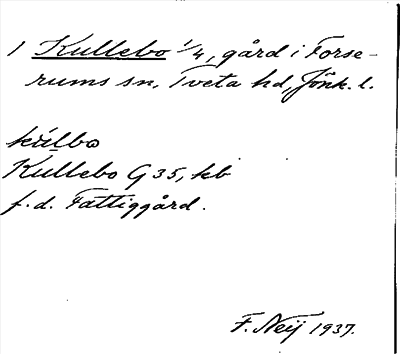 1 Kullebo 1/4, gård i Forse-
rums sn, Tveta hd, Jönk. l.
Kullebo G 35, kb
f. d. Fattiggård.
F. Neij 1937.